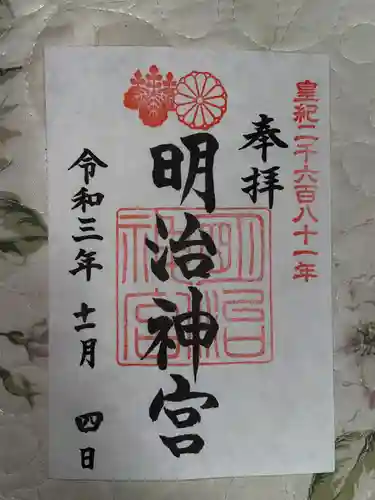 皇紀二千六百八十一年
奉拝
明治神宮
明治神宮
令和三年十一月四日